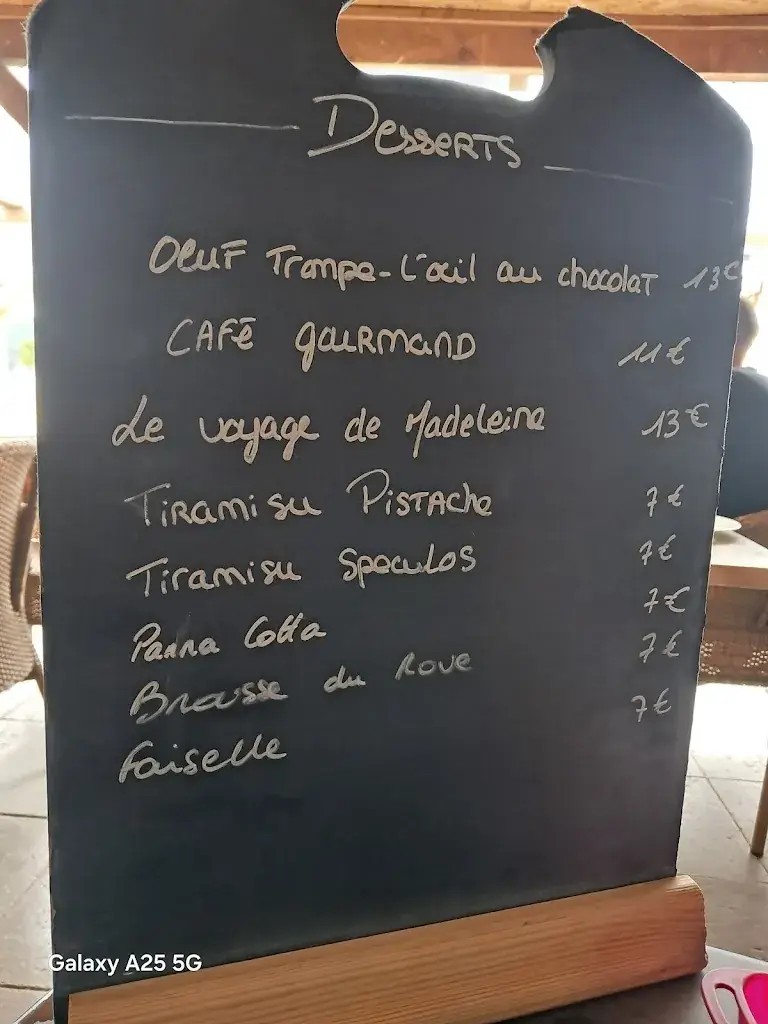 Desserts
OEUF Trompe-L'œil au chocolat 13€
CAFÉ gourmand 11€
Le voyage de Madeleine 13€
Tiramisu Pistache 7€
Tiramisu Speculos 7€
Panna Cotta 7€
Brousse du Rove 7€
Faiselle 7€
Galaxy A25 5G